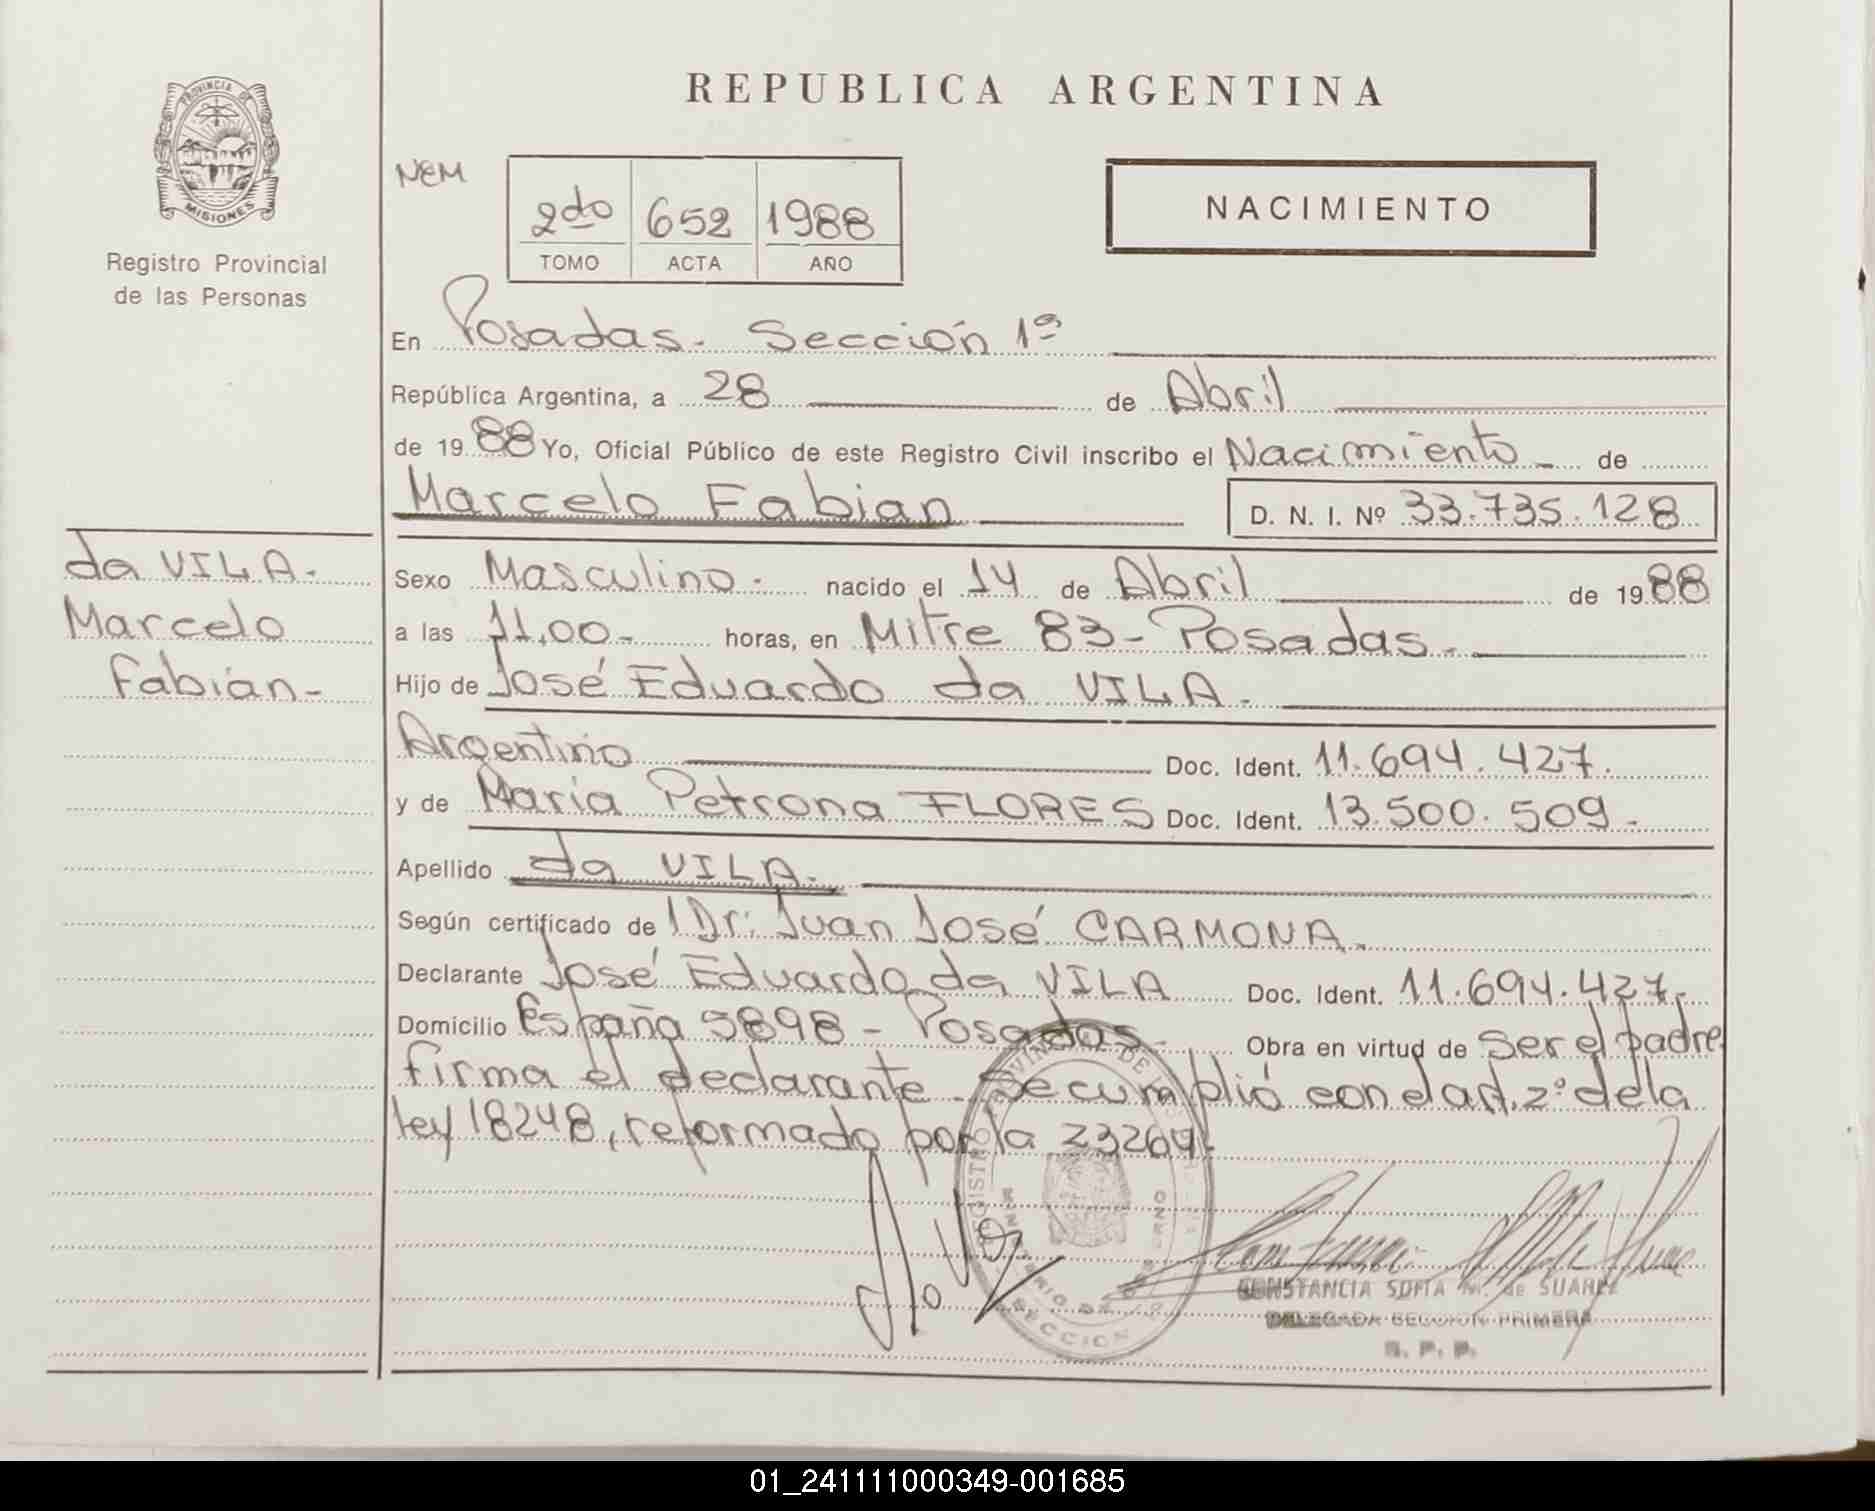 REPUBLICA ARGENTINA
PROVINCIA DE
MISIONES
Registro Provincial
de las Personas
NEM
2do 652 1988
TOMO ACTA AÑO
NACIMIENTO
En Posadas. Sección 1ª
República Argentina, a 28 de Abril
de 1988 Yo, Oficial Público de este Registro Civil inscribo el Nacimiento de
Marcelo Fabian D. N. I. Nº 33.735.128
da VILA.
Marcelo
Fabián-
Sexo Masculino. nacido el 14 de Abril de 1988
a las 11,00- horas, en Mitre 83- Posadas.
Hijo de José Eduardo da VILA.
Argentino Doc. Ident. 11.694.427.
y de María Petrona FLORES Doc. Ident. 13.500.509.
Apellido da VILA.
Según certificado de Dr: Juan José CARMONA.
Declarante José Eduardo da VILA Doc. Ident. 11.694.427.
Domicilio España 5898 - Posadas. Obra en virtud de ser el padre
firma el declarante. Se cumplió con el art. 2º de la
ley 18248, reformado por la 23264.
CONSTANCIA SOFIA M. de SUAREZ
DELEGADA SECCION PRIMERA
R. P. P.
01_241111000349-001685